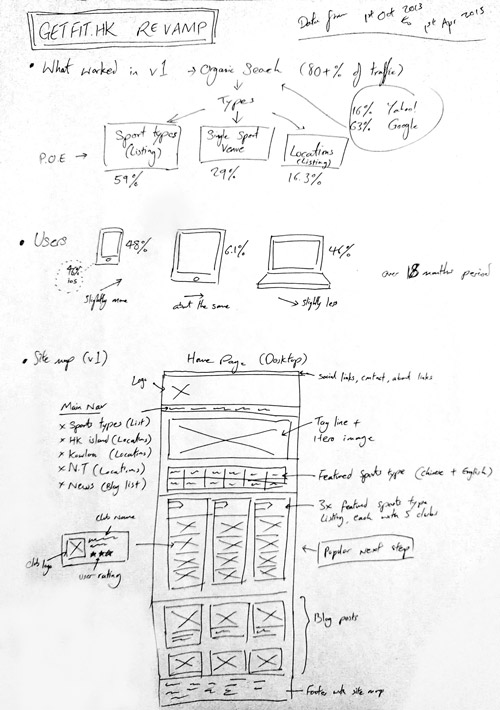 GETFIT.HK REVAMP
Data from 1st Oct 2013
to 1st Apr 2015
• What worked in v1 → Organic Seach (80+% of traffic)
Types
16% Yahoo!
63% Google
P.O.E →
Sport types (Listing)
Single sport venue
Locations (Listing)
59%
29%
16.3%
• Users
48%
6.1%
46%
40% ios
slightly more
about the same
slightly less
over 18 months period
• Site map (v1)
Home Page (Desktop)
Logo
Social links, contact, about links
Main Nav
x Sports types (List)
x HK island (Locations)
x Kowloon (Locations)
x N.T (Locations)
x News (Blog list)
Tag line +
Hero image
Featured sports type (chinese + English)
3x featured sports type
Listing, each with 5 clubs
Club Name
Club logo
user rating
Popular next step
Blog posts
Footer with site map